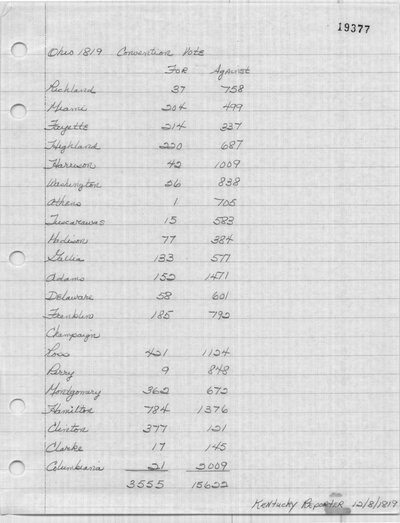 19377
Ohio 1819 Convention Vote
For Against
Richland 37 758
Miami 204 499
Fayette 214 337
Highland 220 687
Harrison 42 1009
Washington 26 838
Athens 1 705
Tuscarawas 15 583
Madison 77 384
Gallia 133 577
Adams 152 1471
Delaware 58 601
Franklin 185 792
Champaign
Ross 421 1124
Perry 9 848
Montgomery 362 672
Hamilton 784 1376
Clinton 377 121
Clarke 17 145
Columbiana 21 2009
3555 15622
Kentucky Reporter 12/8/1819